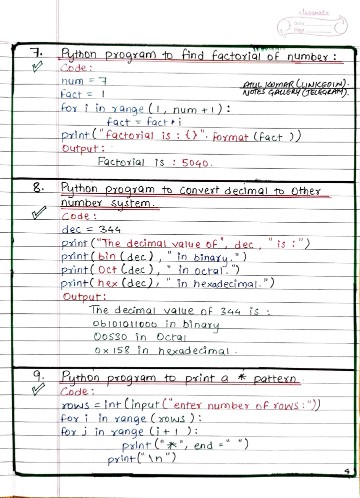 classmate
Date
Page
7. Python program to find factorial of number :
Code :
num = 7
Fact = 1
for i in range (1, num +1) :
fact = fact * i
print ("factorial is : {}". format (fact ))
Output :
Factorial is : 5040.
ATUL KUMAR (LINKEDIN).
NOTES GALLERY (TELEGRAM).
8. Python program to convert decimal to other
number system.
Code :
dec = 344
print ("The decimal value of", dec, "is :")
print ( bin (dec), " in binary.")
print ( oct (dec), " in octal.")
print ( hex (dec), " in hexadecimal.")
Output :
The decimal value of 344 is :
0b101011000 in binary
0o530 in Octal
0x158 in hexadecimal .
9. Python program to print a * pattern
Code :
rows = int (input ("enter number of rows :"))
for i in range (rows) :
for j in range (i + 1) :
print ("*", end = " ")
print ("\n")